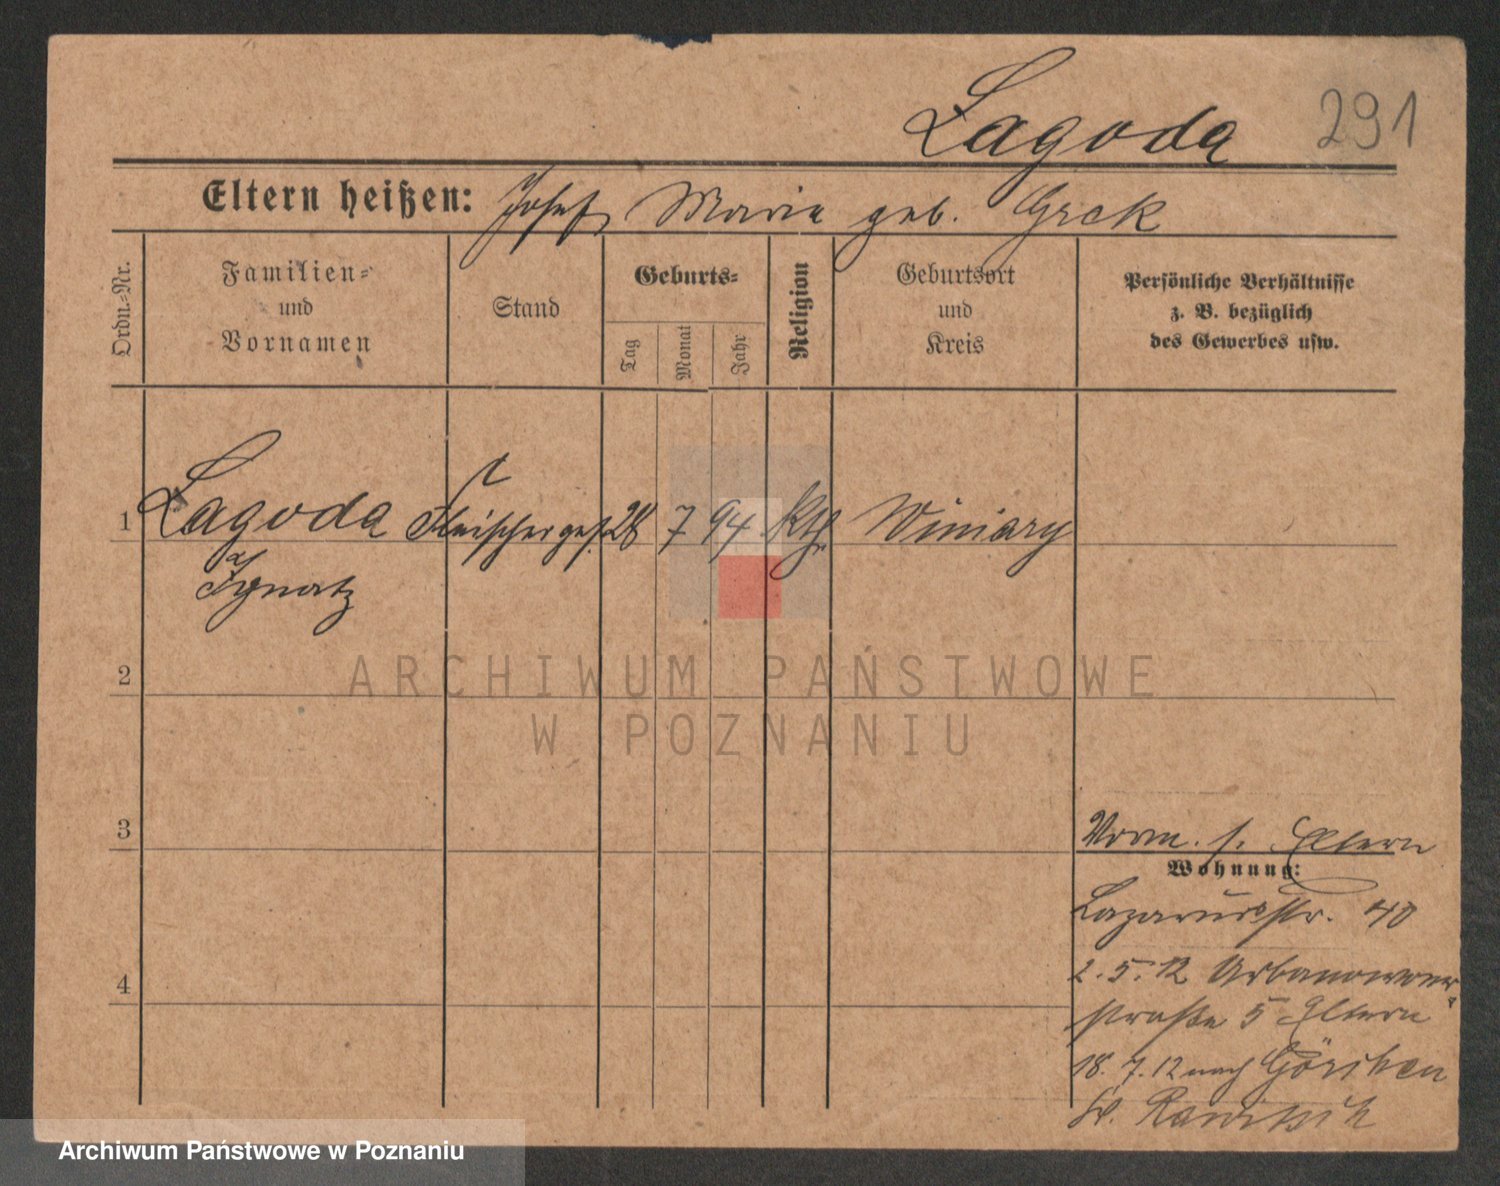 Lagoda 291
Eltern heißen: Josef, Marie geb. Grek
Ordn.=Nr.
Familien=
und
Vornamen
Stand
Geburts=
Tag
Monat
Jahr
Religion
Geburtsort
und
Kreis
Persönliche Verhältnisse
z. B. bezüglich
des Gewerbes usw.
1 Lagoda Fleischerges. 28 7 94 kth. Winiary
Ignatz
2
3
4
Vorm. s. Eltern
Wohnung:
Lazarusstr. 40
2.5.12 Urbanowoer=
straße 5 Eltern
18.7.12 nach Görchen
Kr. Rawitsch
ARCHIWUM PAŃSTWOWE
W POZNANIU
Archiwum Państwowe w Poznaniu